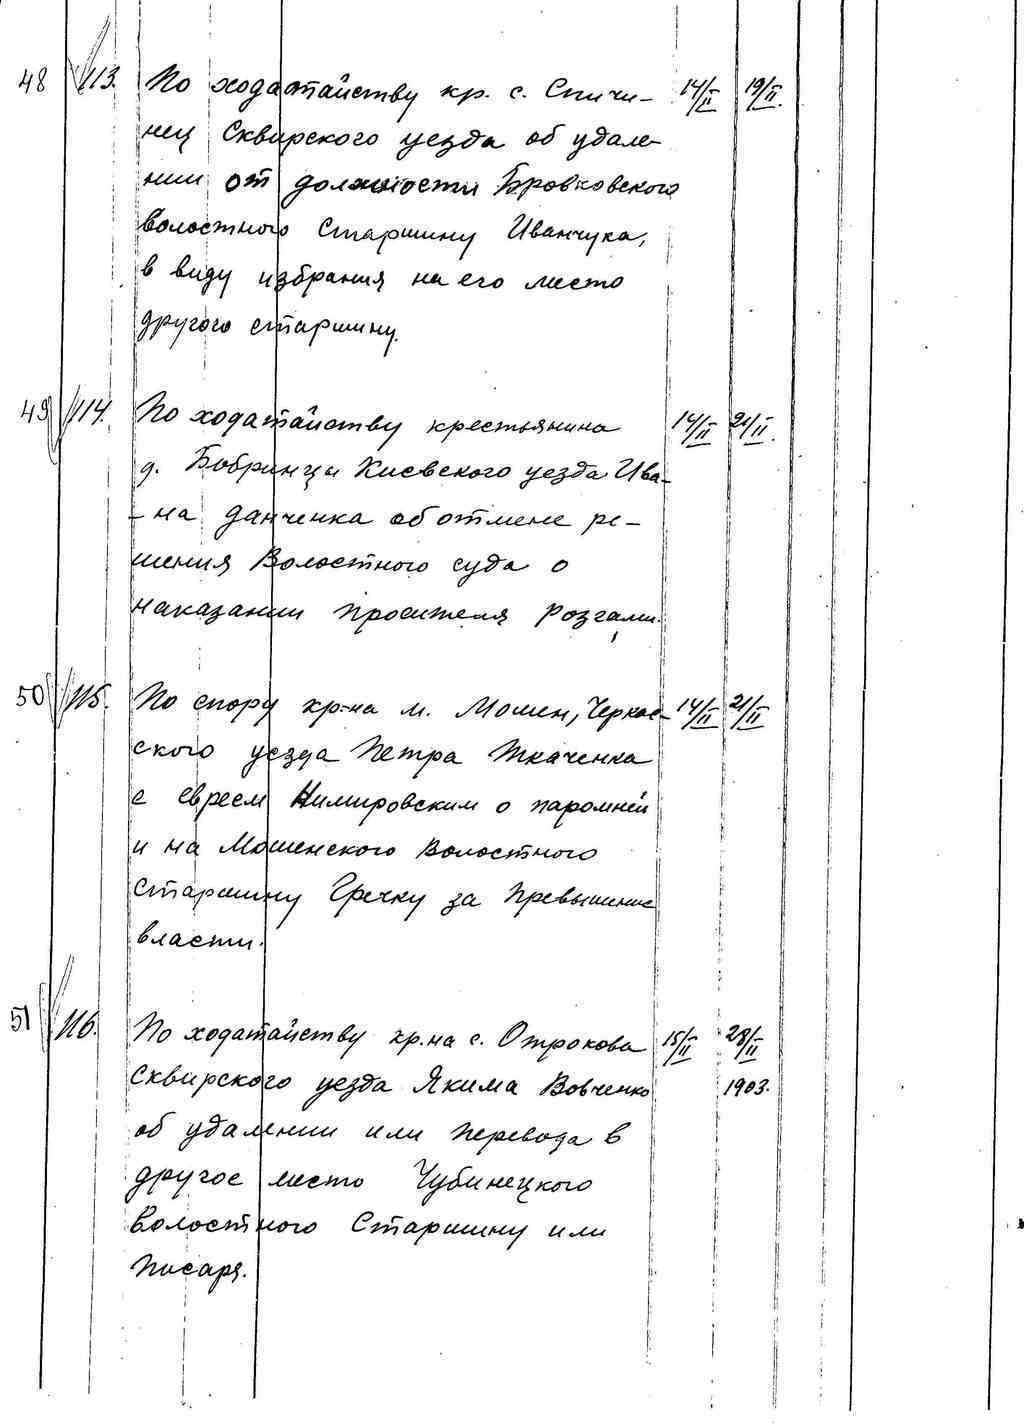 48 113. По ходатайству кр. с. Спичи- 14/II 19/II.
нец Сквирского уезда об удале-
нии от должности Бровковского
волостного Старшину Иванчука,
в виду избрания на его место
другого старшину.
49 114. По ходатайству крестьянина 14/II 21/II.
д. Бобрицы Киевского уезда Ива-
-на Данченка об отмене ре-
шения Волостного суда о
наказании просителя розгами.
50 115. По спору кр-на м. Мошен, Черкас- 14/II 21/II
ского уезда Петра Ткаченка
с евреем Нимировским о
и на Мошенского Волостного
Старшину Гречку за превышение
власти.
51 116. По ходатайству кр.на с. Отрокова 15/II 28/II
Сквирского уезда Якима Вовченко 1903.
об удалении или перевода в
другое место Чубинецкого
Волостного Старшину или
Писаря.